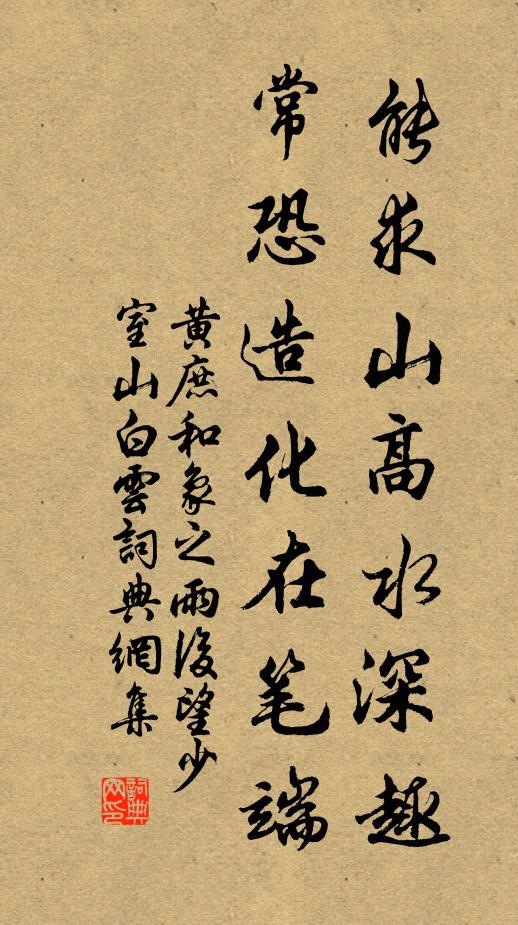 能求山高水深趣
常恐造化在笔端
黄庶和象之雨後望少
室山白雲詞典網集
詞典
网印